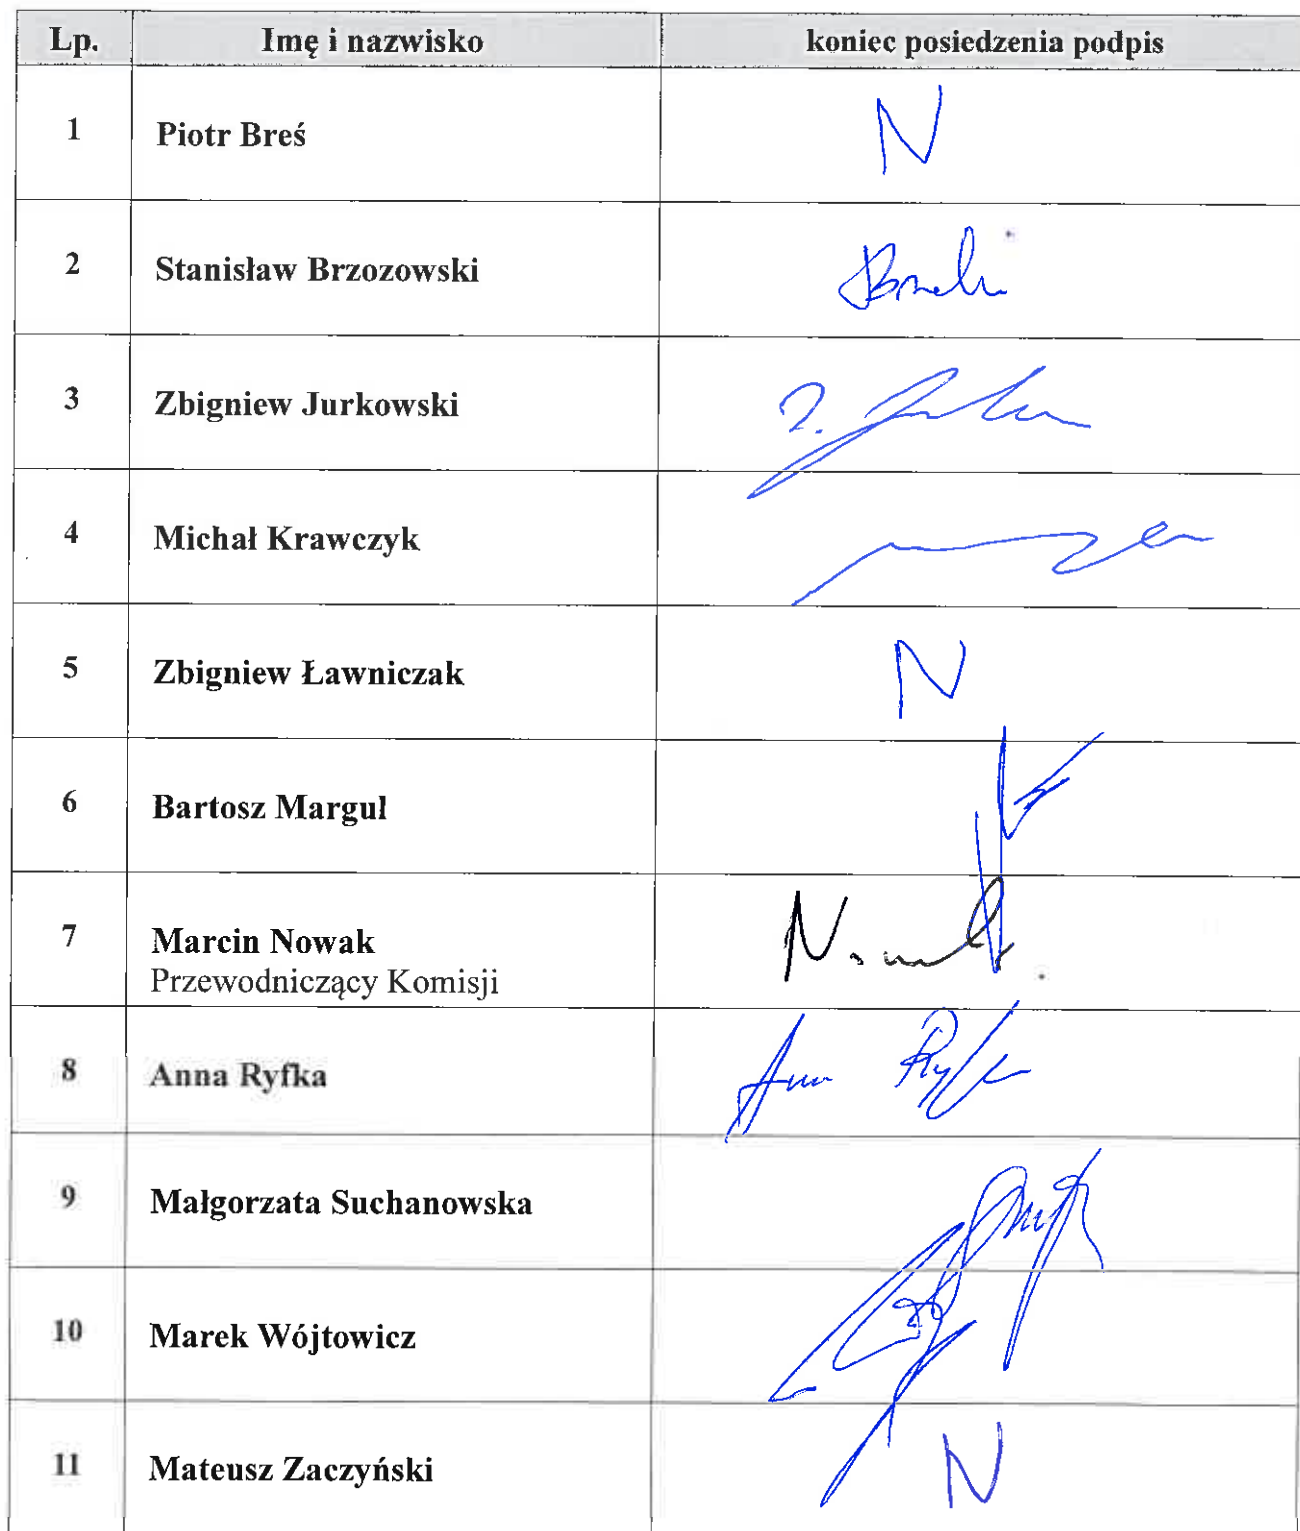 Lp. Imię i nazwisko koniec posiedzenia podpis
1 Piotr Breś N
2 Stanisław Brzozowski
3 Zbigniew Jurkowski
4 Michał Krawczyk
5 Zbigniew Ławniczak N
6 Bartosz Margul
7 Marcin Nowak
Przewodniczący Komisji
8 Anna Ryfka
9 Małgorzata Suchanowska
10 Marek Wójtowicz
11 Mateusz Zaczyński N